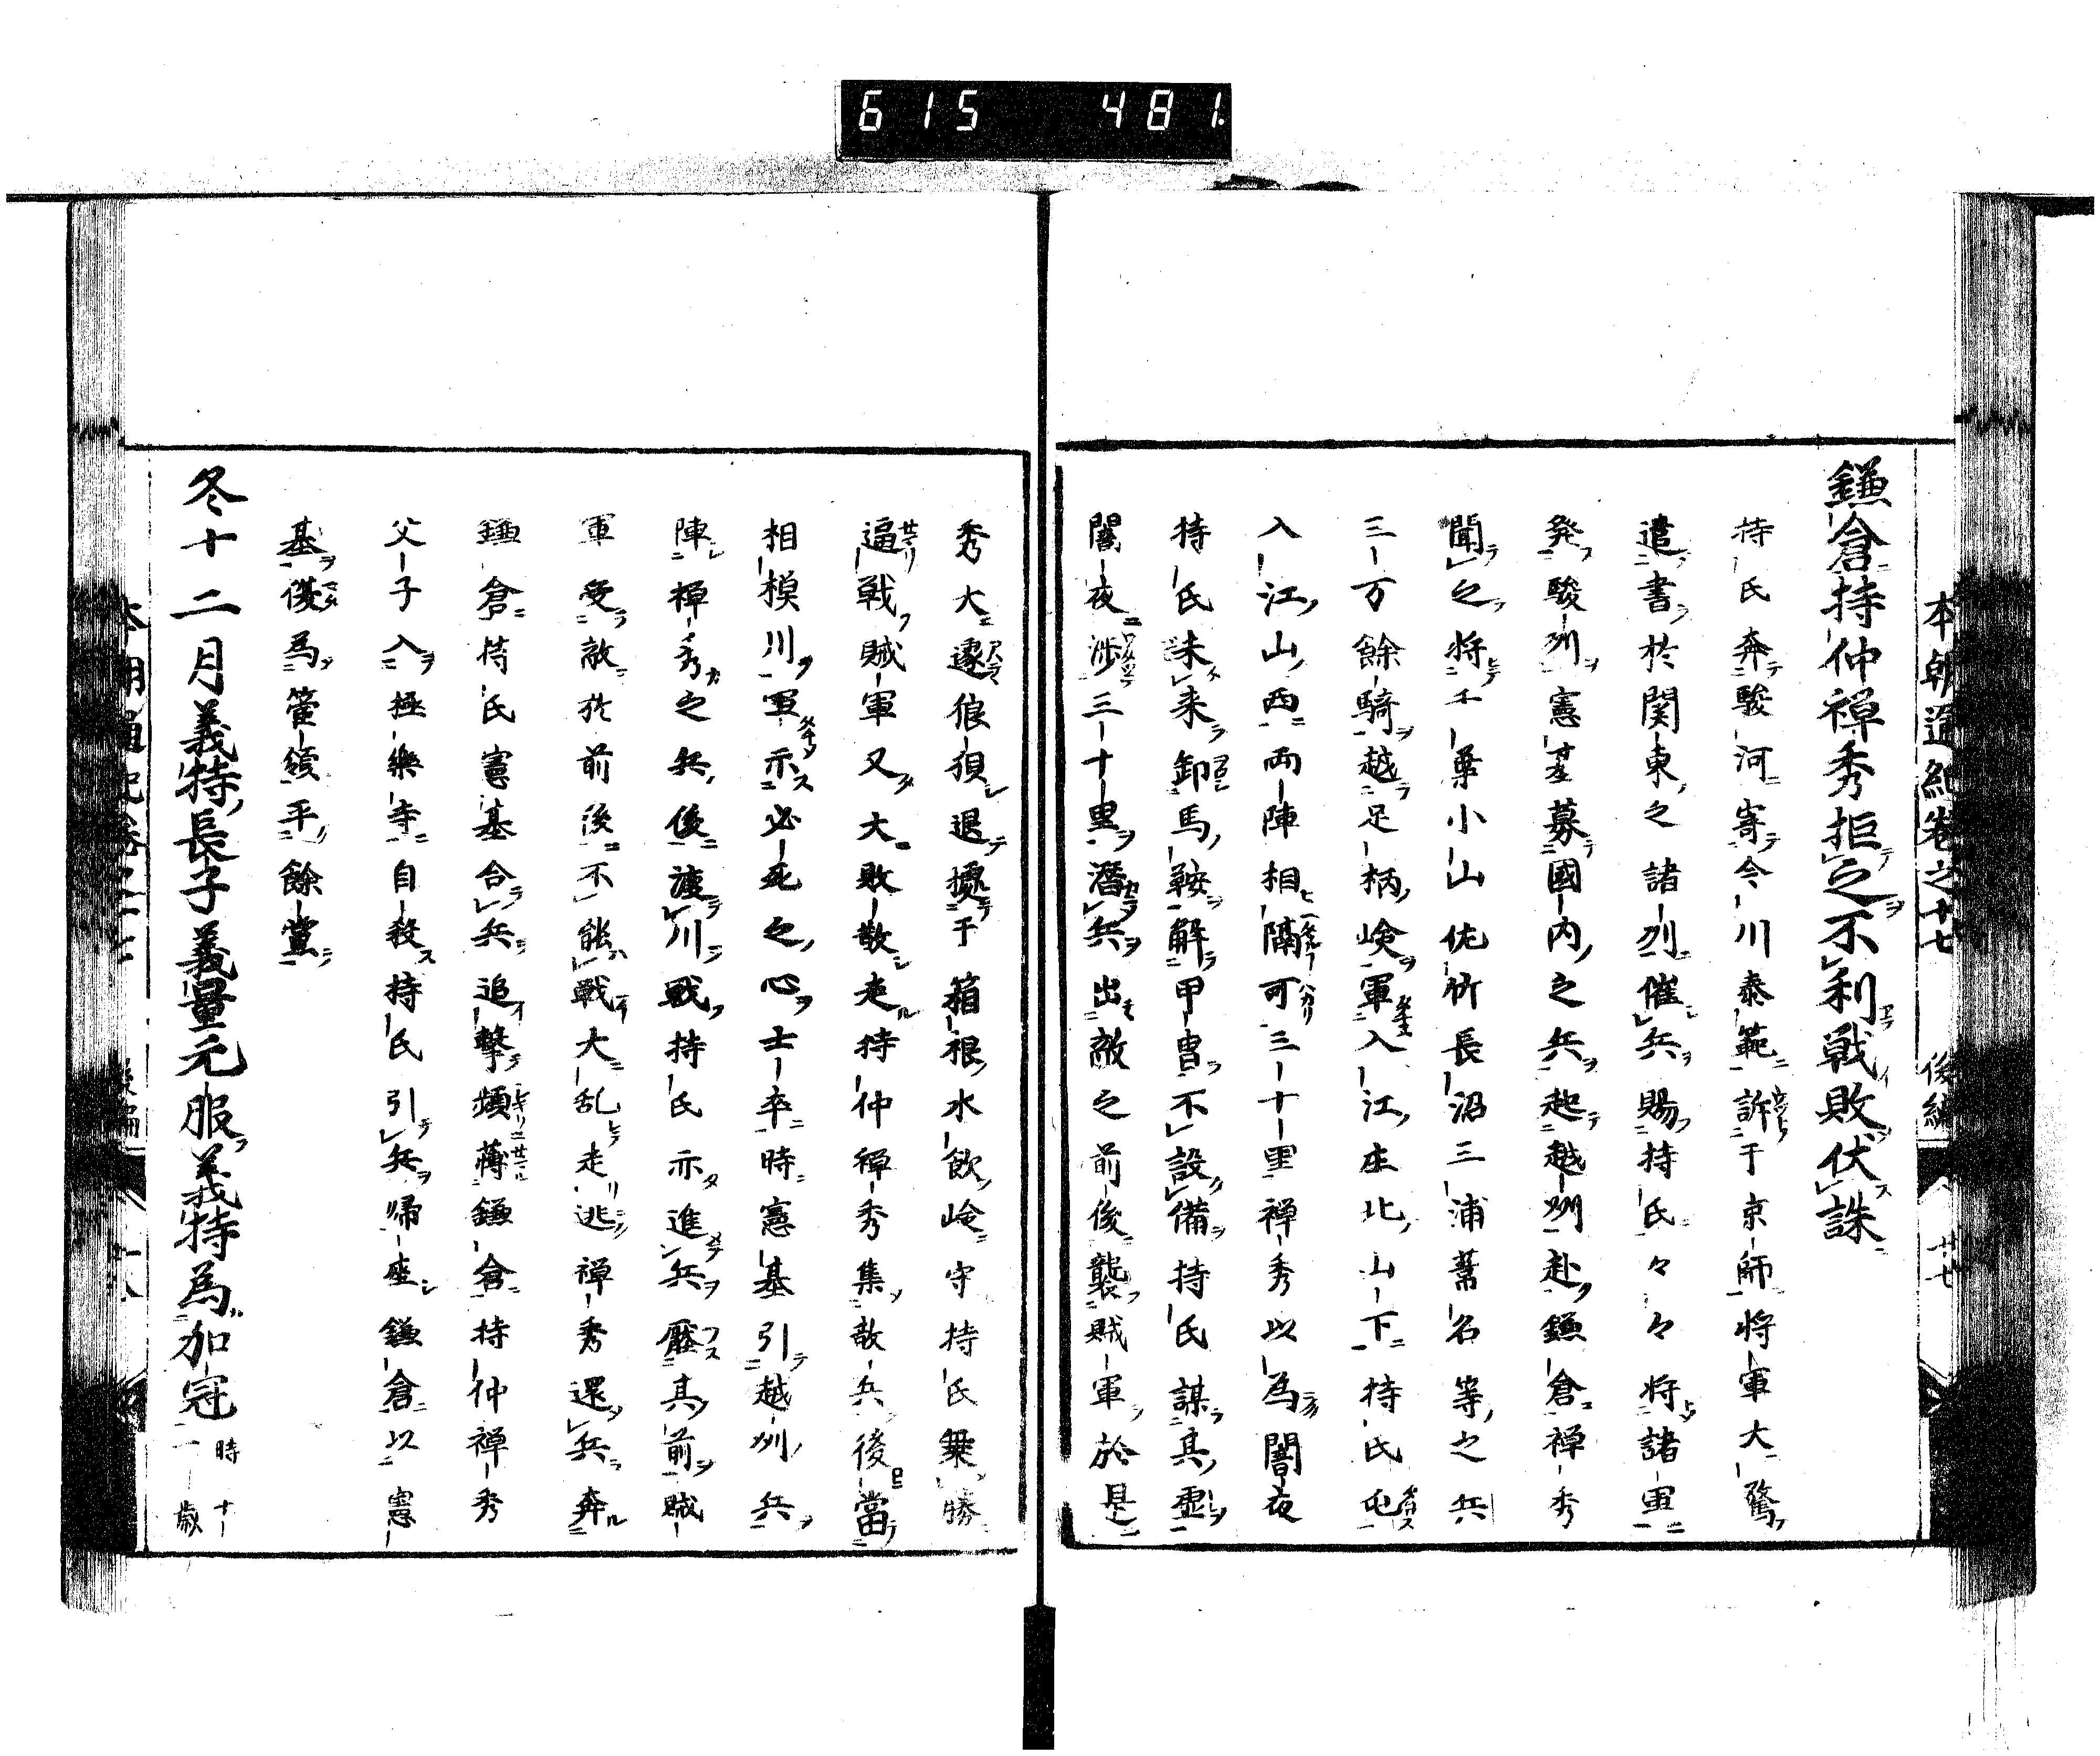 615 481
本朝通紀巻之十七 後編 廿七
鎌倉持仲禅秀拒之不利戦敗伏誅
持氏奔駿河寄今川泰範訴于京師将軍大驚
遣書於関東之諸列催兵賜持氏々々将諸軍
発駿州憲基募國内之兵起越州赴鎌倉禅秀
聞之将千葉小山佐竹長沼三浦蘆名等之兵
三万餘騎越足柄嶮軍入江庄北山下持氏屯
入江山西両陣相隔可三十里禅秀以為闇夜
持氏未来卸馬鞍解甲冑不設備持氏謀其虚
闇夜渉三十里潜兵出敵之前後襲賊軍於是
秀大遽狼狽退據于箱根水飲嶮守持氏乗勝
逼戦賊軍又大敗散走持仲禅秀集散兵後當
相模川軍示必死之心士卒時憲基引越州兵
陣禅秀之兵後渡川戦持氏亦進兵壓其前賊
軍受敵於前後不能戦大乱走逃禅秀還兵奔
鎌倉持氏憲基合兵追撃頻薄鎌倉持仲禅秀
父子入極樂寺自殺持氏引兵帰座鎌倉以憲
基復為管領平餘黨
冬十二月義持長子義量元服義持為加冠 時十一歳